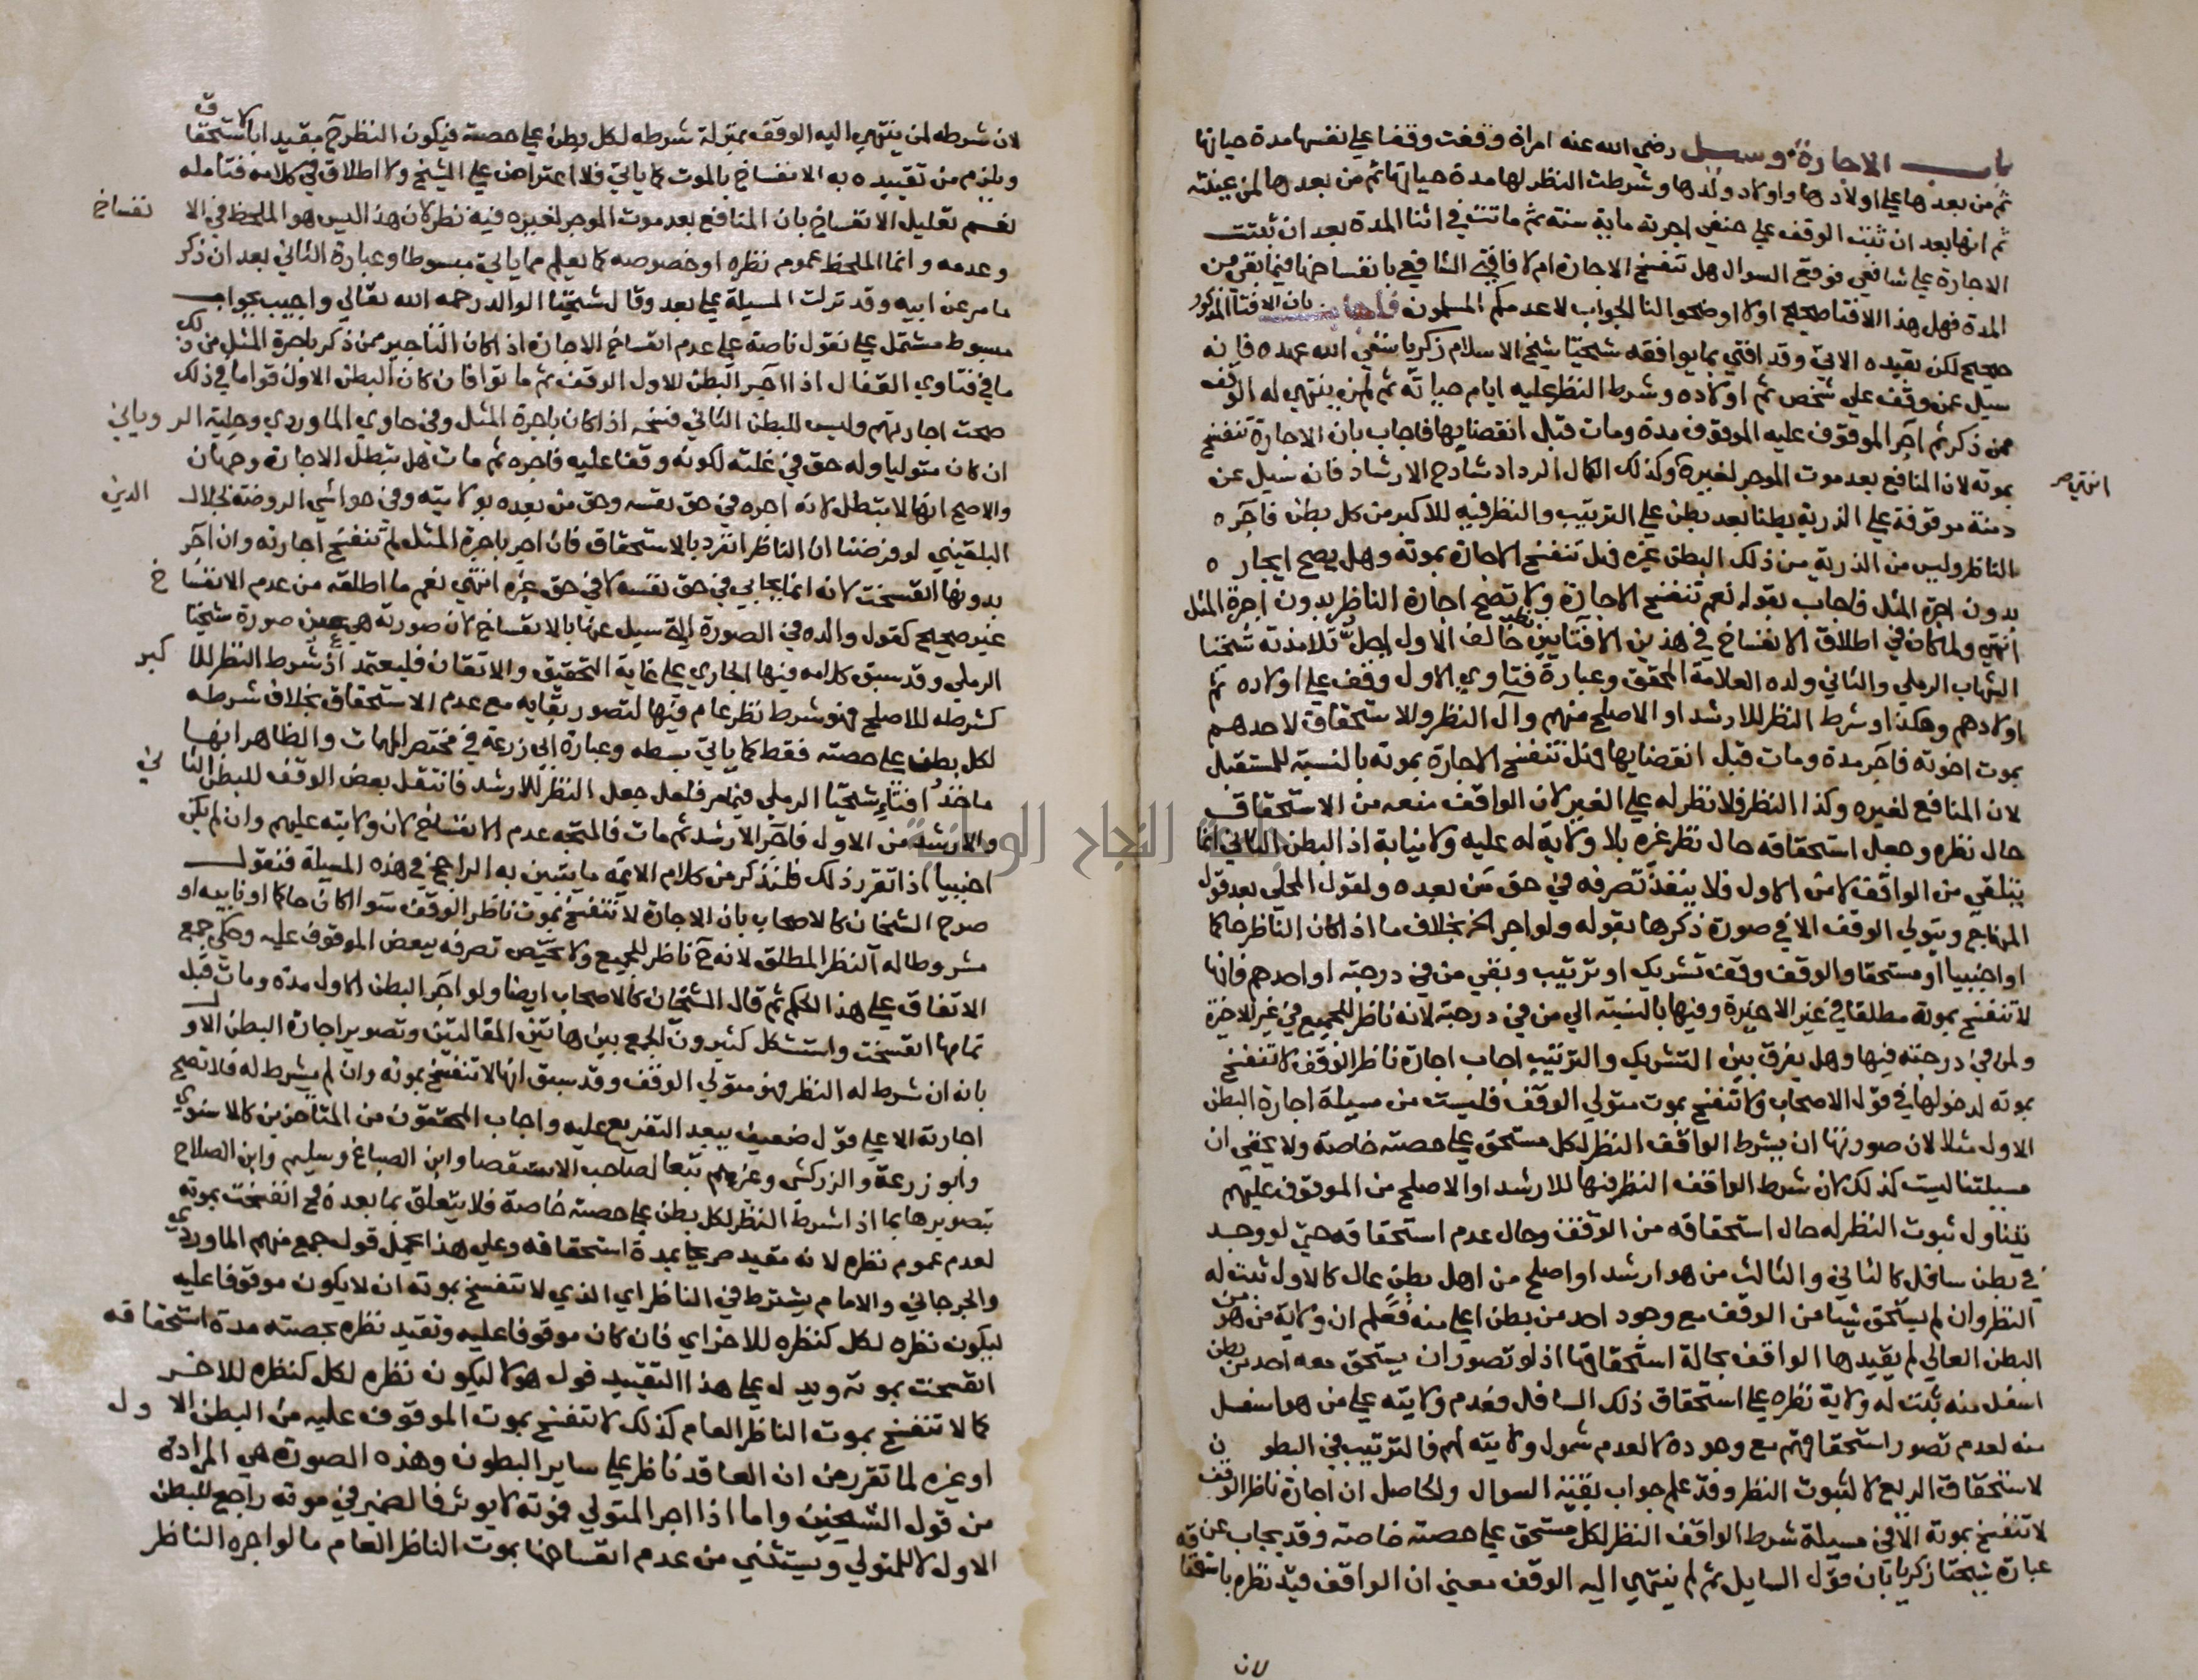 باب الاجارة وسيل رضي الله عنه امراة وقفت وقفا علي نفسها مدة حياتها
ثم من بعدها علي اولادها واولاد ولدها وشرطت النظر لها مدة حياتها ثم من بعدها لمن عينته
ثم انها بعد ان ثبت الوقف علي حنفي اجرته ماية سنة ثم ماتت في اثنا المدة بعد ان ثبتت
الاجارة علي شافعي فوقع السوال هل تنفسخ الاجارة ام لا فافتي الشافعي بانفساخها فيما بقي من
المدة فهل هذا الافتا صحيح او لا اوضحوا لنا الجواب لا عدمكم المسلمون فاجاب بان الافتا المذكور
صحيح لكن بقيده الاتي وقد افتي بما يوافقه شيخنا شيخ الاسلام زكريا سقي الله عهده فانه
سيل عن وقف علي شخص ثم اولاده وشرط النظر عليه ايام حياته ثم لمن ينتهي له الوقف
ممن ذكر ثم آجر الموقوف عليه الموقوف مدة ومات قبل انقضايها فاجاب بان الاجارة تنفسخ
بموته لان المنافع بعد موت الموجر لغيره وكذلك الكمال الرداد شارح الارشاد فانه سيل عن
انتهي صر
دمنة موقوفة علي الذرية بطنا بعد بطن علي الترتيب والنظر فيه للاكبر من كل بطن فآجره
الناظر وليس من الذرية من ذلك البطن غيره فهل تنفسخ الاجارة بموته وهل يصح ايجاره
بدون اجرة المثل فاجاب بقوله نعم تنفسخ الاجارة ولا تصح اجارة الناظر بدون اجرة المثل
انتهي ولما كان في اطلاق الانفساخ في هذين الافتايين نظر خالف الاول اجل تلامذته شيخنا
الشهاب الرملي والثاني ولده العلامة المحقق وعبارة فتاوي الاول وقف علي اولاده ثم
اولادهم وهكذا وشرط النظر للارشد او الاصلح منهم وآل النظر والاستحقاق لاحدهم
بموت اخوته فآجر مدة ومات قبل انقضايها فهل تنفسخ الاجارة بموته بالنسبة للمستقبل
لان المنافع لغيره وكذا النظر فلا نظر له علي الغير لان الواقف منعه من الاستحقاق
حال نظره وجعل استحقاقه حال نظر غيره بلا ولاية له عليه ولا نيابة اذ البطن الثاني انما
يتلقي من الواقف لا من الاول فلا ينفذ تصرفه في حق من بعده ولقول المحلي بعد قول
المنهاج ومتولي الوقف الا في صورة ذكرها بقوله ولو اجر الخ بخلاف ما اذا كان الناظر حاكما
او اجنبيا او مستحقا والوقف وقف تشريك او ترتيب وبقي من في درجته او احدهم فانها
لا تنفسخ بموته مطلقا في غير الاخيرة وفيها بالنسبة الي من في درجته لانه ناظر للجميع في غير الاخيرة
ولمن في درجته فيها وهل يفرق بين التشريك والترتيب اجاب اجارة ناظر الوقف لا تنفسخ
بموته لدخولها في قول الاصحاب ولا تنفسخ بموت متولي الوقف فليست من مسيلة اجارة البطن
الاول مثلا لان صورتها ان يشرط الواقف النظر لكل مستحق علي حصته خاصة ولا يخفي ان
مسيلتنا ليست كذلك لان شرط الواقف النظر فيها للارشد او الاصلح من الموقوف عليهم
يتناول ثبوت النظر له حال استحقاقه من الوقف وحال عدم استحقاقه حتي لو وجد
في بطن سافل كالثاني والثالث من هو ارشد او اصلح من اهل بطن عال كالاول ثبت له
النظر وان لم يستحق شيئا من الوقف مع وجود احد من بطن اعلي منه فعلم ان ولاية من هو من
البطن العالي لم يقيدها الواقف بحالة استحقاقها اذ لو تصور ان يستحق معه احد من بطن
اسفل منه ثبت له ولاية نظره علي استحقاق ذلك السافل فعدم ولايته علي من هو اسفل
منه لعدم تصور استحقاقهم مع وجوده لا لعدم شمول ولايته لهم فالترتيب في البطون
لاستحقاق الريع لا لثبوت النظر وقد علم جواب بقية السوال والحاصل ان اجارة ناظر الوقف
لا تنفسخ بموته الا في مسيلة شرط الواقف النظر لكل مستحق علي حصته خاصة وقد يجاب عن
عبارة شيخنا زكريا بان قول السايل ثم لمن ينتهي اليه الوقف معني ان الواقف قيد نظره باستحقاقه
لان
لان شرطه لمن ينتهي اليه الوقف بمنزلة شرطه لكل بطن علي حصته فيكون النظر ح مقيدا بالاستحقاق
ويلزم من تقييده به الانفساخ بالموت كما ياتي فلا اعتراض علي الشيخ ولا اطلاق في كلامه فتامله
نعم تعليل الانفساخ بان المنافع بعد موت الموجر لغيره فيه نظر لان هذا ليس هو الملحظ في الانفساخ
وعدمه وانما الملحظ عموم نظره او خصوصه كما يعلم مما ياتي مبسوطا وعبارة الثاني بعد ان ذكر
ما مر عن ابيه وقد نزلت المسيلة علي بعد وقال شيخنا الوالد رحمه الله تعالي واجيب بجواب
مبسوط مشتمل علي نقول ناصة علي عدم انفساخ الاجارة اذا كان التاجير ممن ذكر باجرة المثل من ذلك
ما في فتاوي القفال اذا آجر البطن الاول الوقف ثم ماتوا فان كان البطن الاول قواما في ذلك
صحت اجارتهم وليس للبطن الثاني فسخه اذا كان باجرة المثل وفي حاوي الماوردي وحلية الروياني
ان كان متوليا وله حق في غلته لكونه وقفا عليه فاجره ثم مات هل تبطل الاجارة وجهان
والاصح انها لا تبطل لانه اجره في حق نفسه وحق من بعده بولايته وفي حواشي الروضة لجلال الدين
البلقيني لو فرضنا ان الناظر انفرد بالاستحقاق فان اجر باجرة المثل لم تنفسخ اجارته وان آجر
بدونها انفسخت لانه انما يحابي في حق نفسه لا في حق غيره انتهي نعم ما اطلقه من عدم الانفساخ
غير صحيح كقول والده في الصورة التي سيل عنها بالانفساخ لان صورته هي عين صورة شيخنا
الرملي وقد سبق كلامه فيها الجاري علي غاية التحقيق والاتقان فليعتمد اذ شرط النظر للاكبر
كشرطه للاصلح فهو شرط نظر عام فيها لتصور بقايه مع عدم الاستحقاق بخلاف شرطه
لكل بطن علي حصته فقط كما ياتي بسطه وعبارة ابي زرعة في مختصر المهمات والظاهر انها
ماخذ افتاء شيخنا الرملي فيما مر فلعل جعل النظر للارشد فانتقل بعض الوقف للبطن الثاني
والارشد من الاول فآجر الارشد ثم مات فالمتجه عدم الانفساخ لان ولايته عليهم وان لم يكن
اجنبيا اذا تقرر ذلك فلنذكر من كلام الايمة ما يتبين به الراجح في هذه المسيلة فنقول
صرح الشيخان كالاصحاب بان الاجارة لا تنفسخ بموت ناظر الوقف سوا اكان حاكما او نايبه او
مشروطا له النظر المطلق لانه ح ناظر للجميع ولا يختص تصرفه ببعض الموقوف عليه وحكي جمع
الاتفاق علي هذا الحكم ثم قال الشيخان كالاصحاب ايضا ولو آجر البطن الاول مدة ومات قبل
تمامها انفسخت واستشكل كثيرون الجمع بين هاتين المقالتين وتصوير اجارة البطن الاول
بانه ان شرط له النظر فهو متولي الوقف وقد سبق انها لا تنفسخ بموته وان لم يشرط له فلا تصح
اجارته الا علي قول ضعيف يبعد التفريع عليه واجاب المحققون من المتاخرين كالاسنوي
وابو زرعة والزركشي وغيرهم تبعا لصاحب الاستقصا وابن الصباغ وسليم وابن الصلاح
بتصويرها بما اذا شرط النظر لكل بطن علي حصته خاصة فلا يتعلق بما بعده فح انفسخت بموته
لعدم عموم نظره لانه مقيد صريحا بمدة استحقاقه وعلي هذا يحمل قول جمع منهم الماوردي
والجرجاني والامام يشترط في الناظر اي الذي لا تنفسخ بموته ان لا يكون موقوفا عليه
ليكون نظره لكل كنظره للاخر اي فان كان موقوفا عليه وتقيد نظره بحصته مدة استحقاقه
انفسخت بموته ويدل علي هذا التقييد قول هولا ليكون نظره لكل كنظره للاخر
كما لا تنفسخ بموت الناظر العام كذلك لا تنفسخ بموت الموقوف عليه من البطن الاول
او غيره لما تقرر من ان العاقد ناظر علي ساير البطون وهذه الصورة هي المرادة
من قول الشيخين واما اذا اجر المتولي فموته لا يوثر فالضمير في موته راجع للبطن
الاول لا للمتولي ويستثني من عدم انفساخها بموت الناظر العام ما لو اجره الناظر